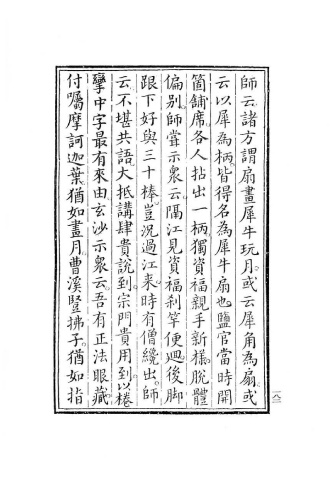 師云諸方謂扇畫犀牛玩月或云犀角為扇或
云以犀為柄皆得名為犀牛扇也鹽官當時開
箇鋪席各人拈出一柄獨資福親手新樣脫體
偏別師嘗示衆云隔江見資福刹竿便迴後脚
跟下好與三十棒豈況過江来時有僧纔出師
云不堪共語大抵講肆貴說到宗門貴用到以棬
攣中字最有來由玄沙示衆云吾有正法眼藏
付囑摩訶迦葉猶如畫月曹溪竪拂子猶如指
一八二